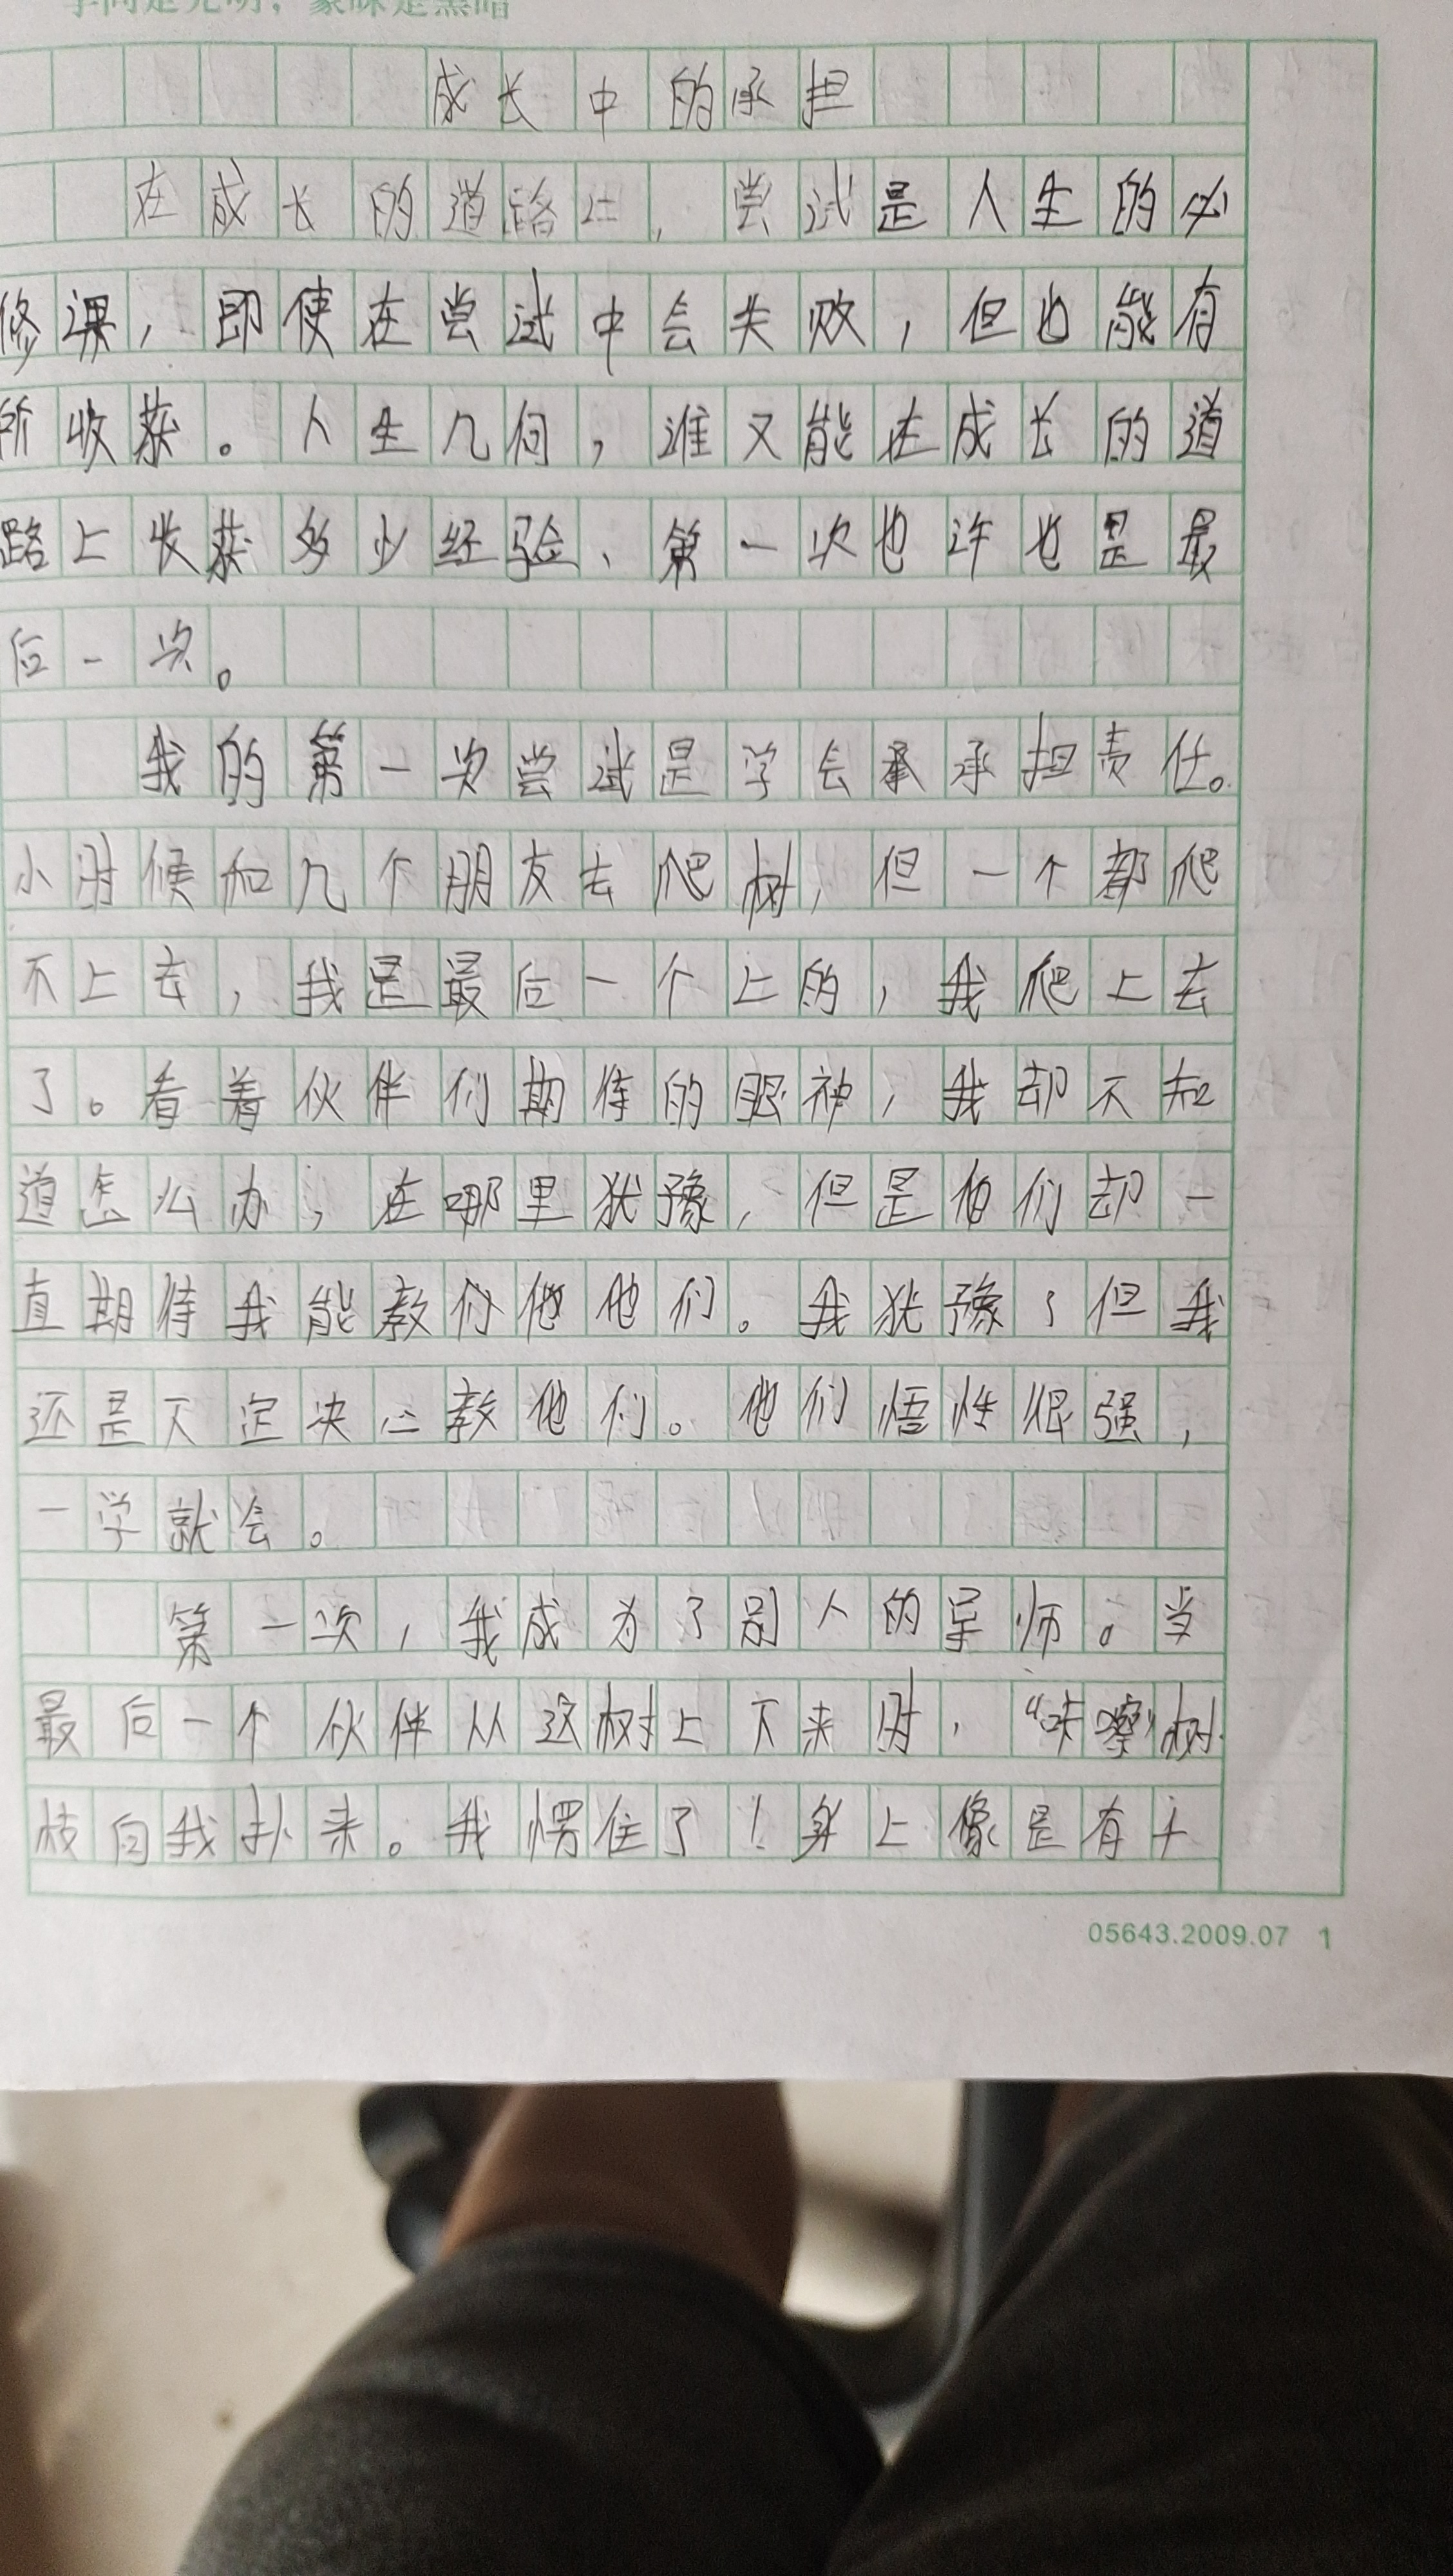 学问是光明，蒙昧是黑暗
成长中的承担
在成长的道路上，尝试是人生的必
修课，即使在尝试中会失败，但也能有
所收获。人生几何，谁又能在成长的道
路上收获多少经验、第一次也许也是最
后一次。
我的第一次尝试是学会承承担责任。
小时候和几个朋友去爬树，但一个都爬
不上去，我是最后一个上的，我爬上去
了。看着伙伴们期待的眼神，我却不知
道怎么办，在哪里犹豫，但是他们却一
直期待我能教你他他们。我犹豫了但我
还是下定决心教他们。他们悟性很强，
一学就会。
第一次，我成为了别人的导师。当
最后一个伙伴从这树上下来时，“咔嚓”树
枝向我扑来。我愣住了！身上像是有千
05643.2009.07 1